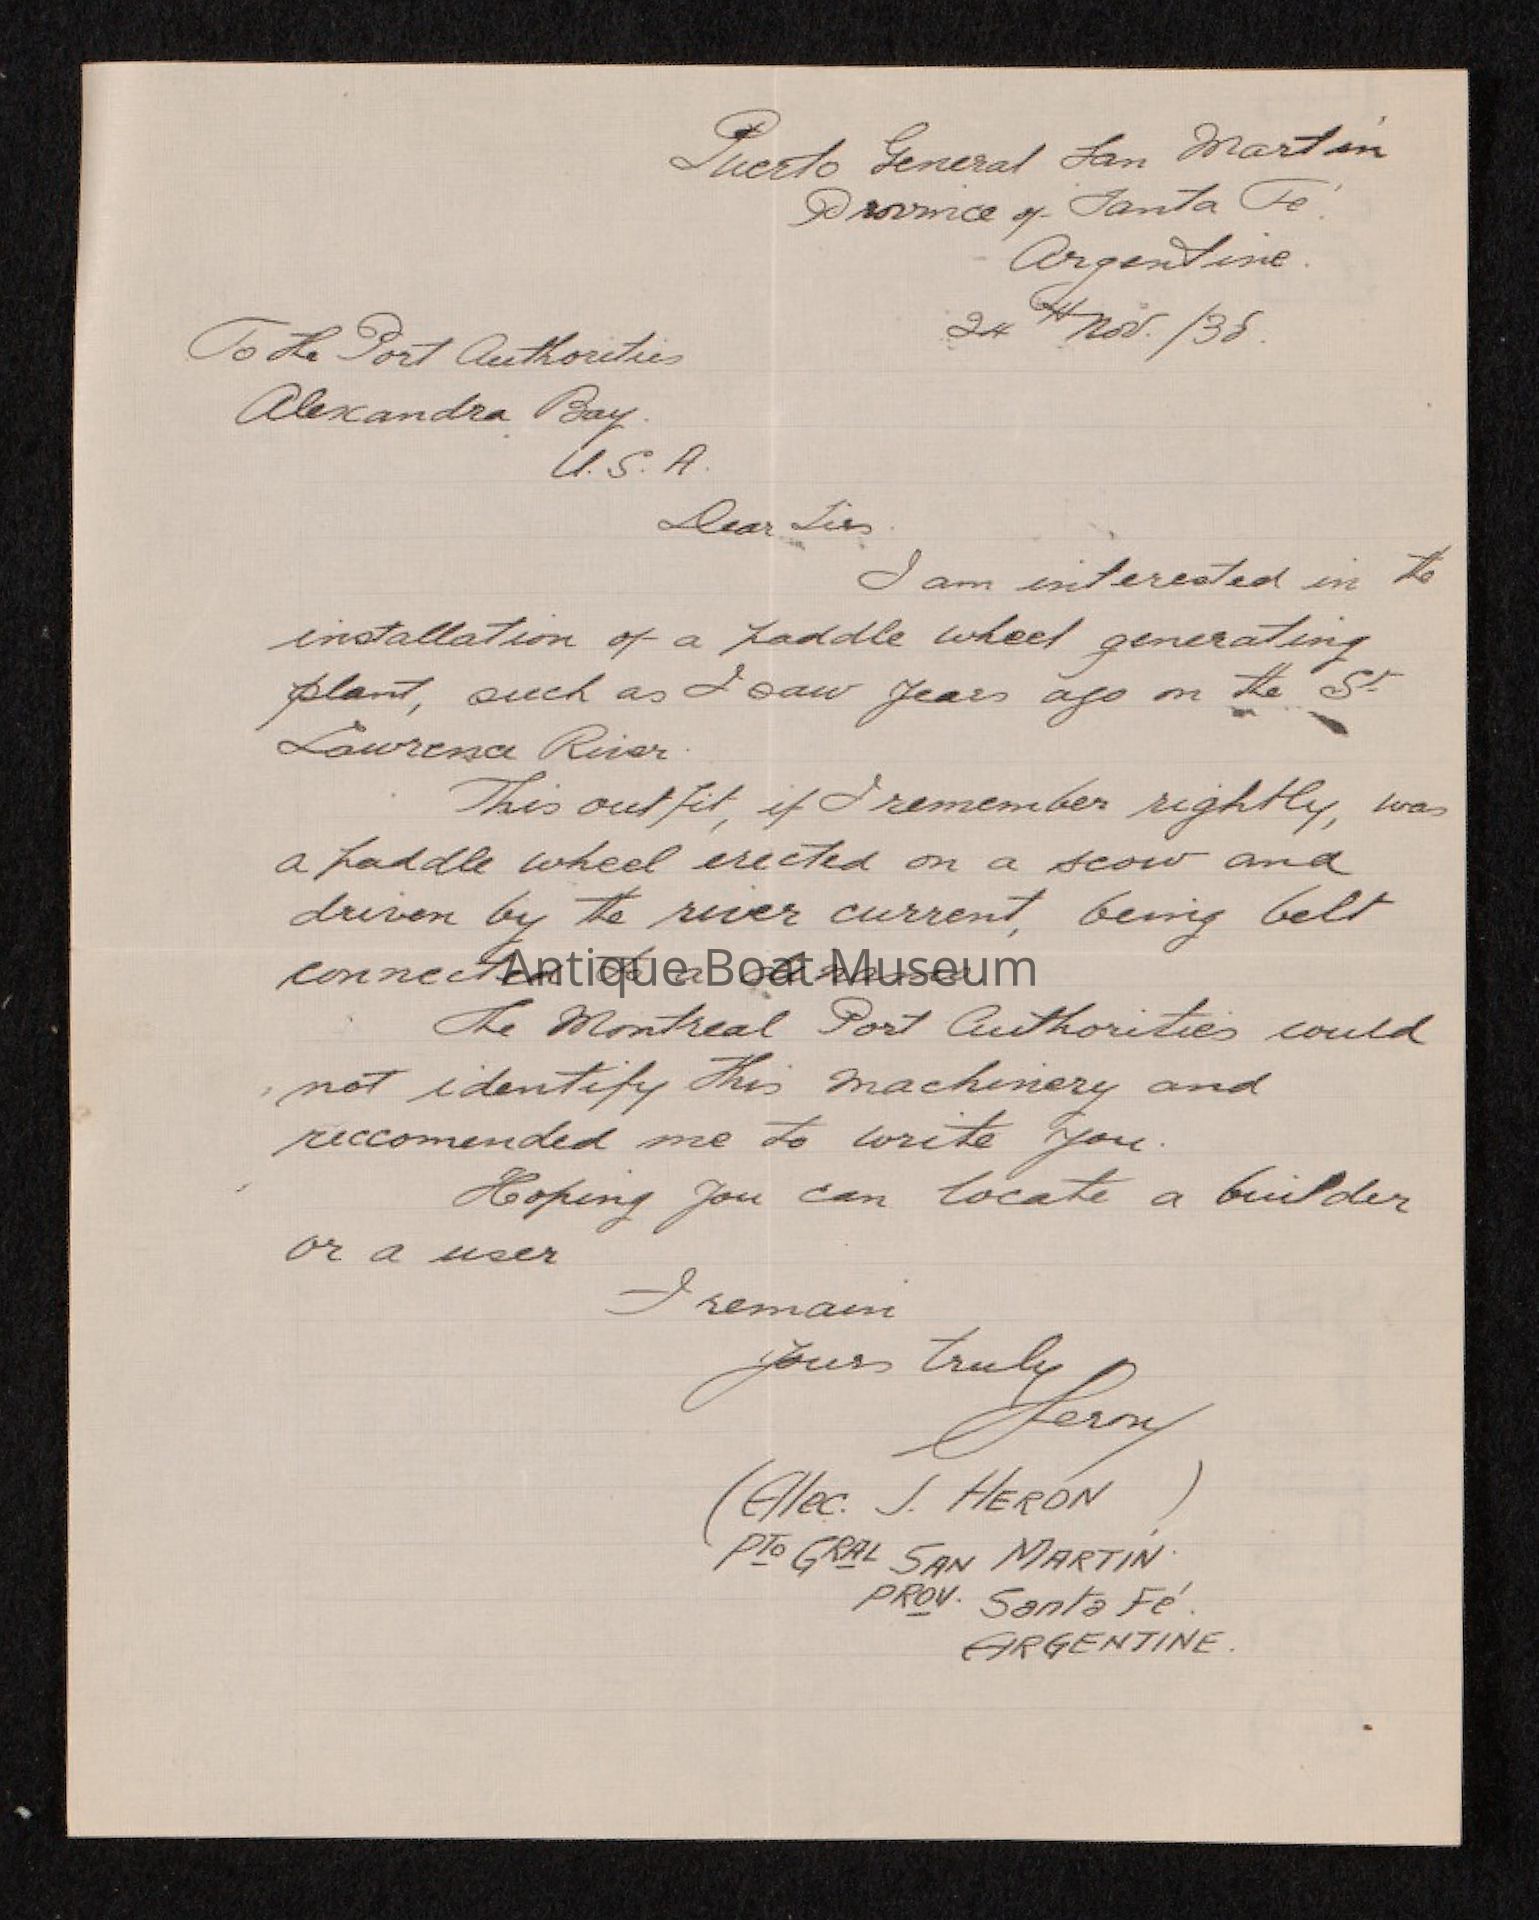 Puerto General San Martín
Province of Santa Fé.
Argentine.
24th Nov. /38.
To the Port Authorities
Alexandra Bay.
U.S.A.
Dear Sirs.
I am interested in the
installation of a paddle wheel generating
plant, such as I saw years ago on the St
Lawrence River.
This outfit, if I remember rightly, was
a paddle wheel erected on a scow and
driven by the river current, being belt
connected to a dynamo.
Antique Boat Museum
The Montreal Port Authorities could
not identify this machinery and
reccomended me to write you.
Hoping you can locate a builder
or a user
I remain
yours truly
Heron
(Alec. J. HERON)
PTO GRAL SAN MARTIN.
PROV. Santa Fé.
ARGENTINE.